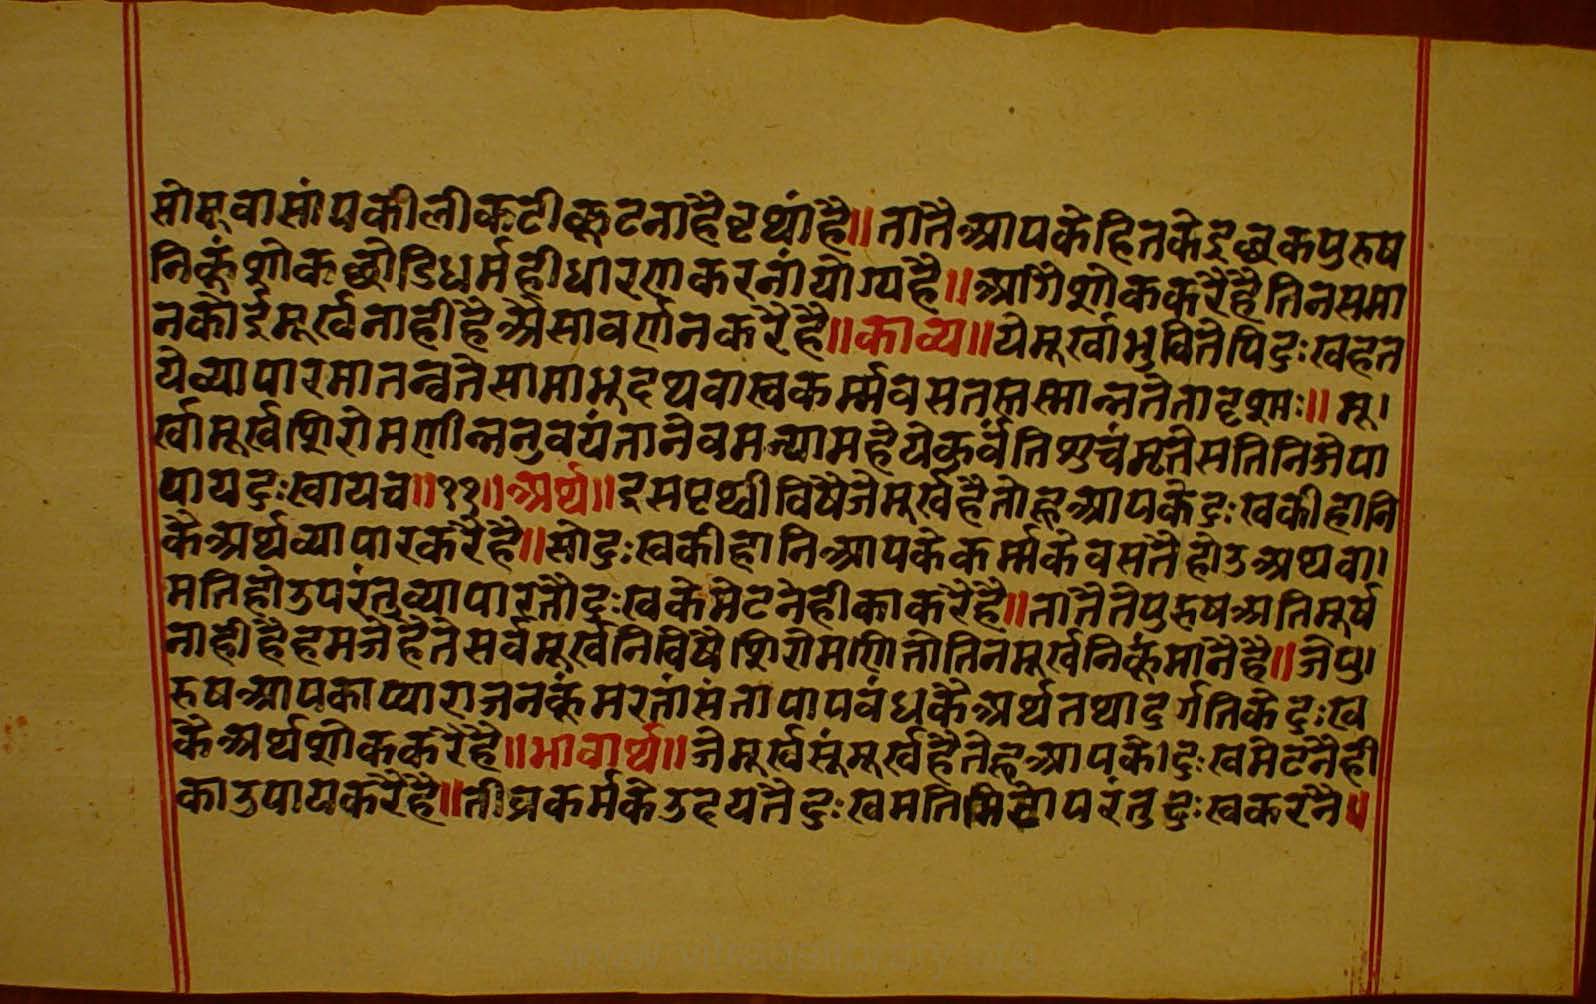 सोमूवासांपकीलीकटीकूटनाहैवृथांहै॥तातैआपकेहितकेइछुकपुरुष
निकूंशोकछोडिधर्महीधारणाकरनांयोग्यहै॥आगैशोककरैहैतिनसमा
नकोईमूर्खनाहीहैअैसावर्णनकरैहै॥काव्य॥येमूर्खाभुवितेपिदुःखहत
येव्यापारमातन्वतेसामाभूदथवास्वकर्म्मवसतस्तस्मान्नतेतादृशाः॥मू।
र्खामूर्खशिरोमणीन्ननुवयंतानेवमन्यामहेयेकुर्वंतिशुचंमृतेसतिनिजेपा
पायदुःखायच॥११॥अर्थ॥इसपृथ्वीविषैजेमूर्खहैतोहूआपकेदुःखकीहानि
कैअर्थव्यापारकरैहै॥सोदुःखकीहानिआपकेकर्म्मकेवसतैहोउअथवा।
मतिहोउपरंतुव्यापारतौदुःखकेमेटनेहीकाकरैहै॥तातैतेपुरुषअतिमूर्ष
नाहीहैहमजेहैतेसर्वमूर्खनिविषैशिरोमणितोतिनमूर्खनिकूंमानैहै॥जेपु।
रुषआपकाप्याराजनकूंमरतांसंतापापबंधकैअर्थतथादुर्गतिकेदुःख
कैअर्थशोककरैहै॥भावार्थ॥जेमूर्खसूंमूर्खहैतेहूआपको।दुःखमेटनैही
काउपायकरैहै॥तीव्रकर्मकेउदयतैदुःखमतिमिटोपरंतुदुःखकरनै॥